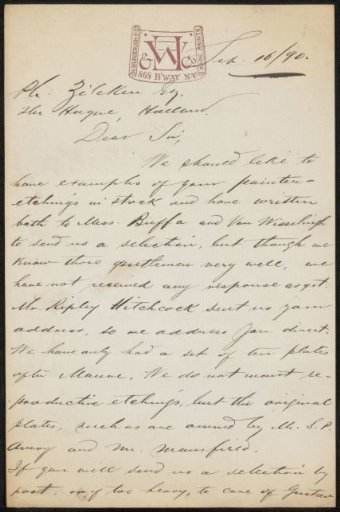 H. WUNDERLICH & CO.
868 B'WAY N.Y.
Sep. 16/90.
Ph. Zilcken Esq.
The Hague, Holland.
Dear Sir,
We should like to
have examples of your painter-
etchings in stock and have written
both to Mess. Buffa and Van Wisselingh
to send us a selection, but though we
know those gentlemen very well, we
have not received any response as yet.
Mr. Ripley Hitchcock sent us your
address, so we address you direct.
We have only had a set of ten plates
after Mauve. We do not want re-
productive etchings, but the original
plates, such as are owned by Mr. S.P.
Avery and Mr. Mansfield.
If you will send us a selection by
post, if too heavy, to care of Gustav